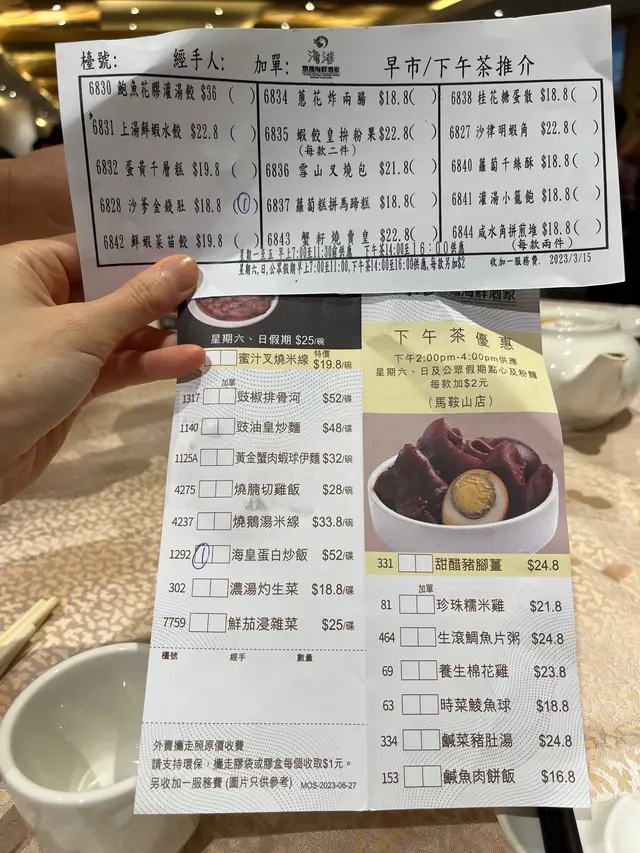 檯號: 經手人: 加單: 灣港 燒鵝海鮮酒家 早市/下午茶推介
6830 鮑魚花膠灌湯餃 $36 ( )
6831 上湯鮮蝦水餃 $22.8 ( )
6832 蛋黃千層糕 $19.8 ( )
6828 沙爹金錢肚 $18.8 (1)
6842 鮮蝦菜苗餃 $19.8 ( )
6834 蔥花炸兩腸 $18.8( )
6835 蝦餃皇拚粉果$22.8( )
(每款二件)
6836 雪山叉燒包 $21.8( )
6837 蘿蔔糕拼馬蹄糕 $18.8( )
6843 蟹籽燒賣皇 $22.8( )
6838 桂花糖蛋散 $18.8( )
6827 沙律明蝦角 $22.8( )
6840 蘿蔔千絲酥 $18.8( )
6841 灌湯小籠飽 $18.8( )
6844 咸水角拼煎堆 $18.8( )
(每款兩件)
星期一至五 早上7:00至11:30前供應 下午茶14:00至16:00供應
星期六,日,公眾假期早上7:00至11:00,下午茶14:00至16:00供應,每款另加$2
收加一服務費. 2023/3/15
星期六、日假期 $25/碗
蜜汁叉燒米線 特價 $19.8/碗
加單
1317 豉椒排骨河 $52/碟
1140 豉油皇炒麵 $48/碟
1125A 黃金蟹肉蝦球伊麵 $32/碗
4275 燒腩切雞飯 $28/碗
4237 燒鵝湯米線 $33.8/碗
1292 1 海皇蛋白炒飯 $52/碟
302 濃湯灼生菜 $18.8/碟
7759 鮮茄浸雜菜 $25/碟
檯號 經手 數量
外賣攜走照原價收費
請支持環保，攜走膠袋或膠盒每個收取$1元。
另收加一服務費 (圖片只供參考) MOS-2023-06-27
海鮮酒家
下午茶優惠
下午2:00pm-4:00pm供應
星期六、日及公眾假期點心及粉麵
每款加$2元
(馬鞍山店)
331 甜醋豬腳薑 $24.8
加單
81 珍珠糯米雞 $21.8
464 生滾鯛魚片粥 $24.8
69 養生棉花雞 $23.8
63 時菜鯪魚球 $18.8
334 鹹菜豬肚湯 $24.8
153 鹹魚肉餅飯 $16.8